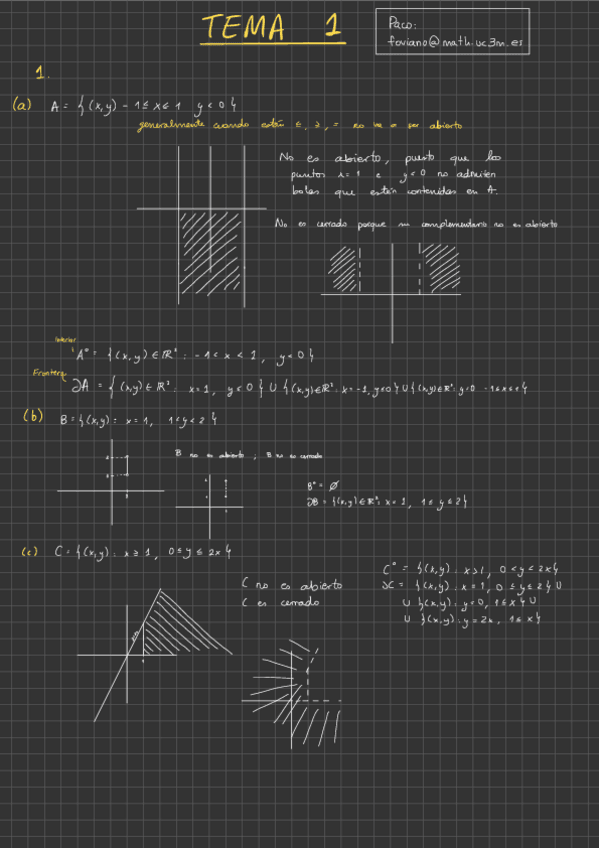 TEMA 1
Paco:
foviano@math.uc3m.es
1.
(a) A = {(x,y) - 1 ≤ x ≤ 1 y < 0}
generalmente cuando están ≤, ≥, = no va a ser abierto
No es abierto, puesto que los
puntos x = 1 e y < 0 no admiten
bolas que estén contenidas en A.
No es cerrado porque su complementario no es abierto
Interior
A° = {(x,y) ∈ ℝ² : -1 < x < 1, y < 0}
Frontera
∂A = {(x,y) ∈ ℝ² : x = 1, y < 0} ∪ {(x,y) ∈ ℝ² : x = -1, y < 0} ∪ {(x,y) ∈ ℝ² : y = 0 -1 ≤ x ≤ 1}
(b) B = {(x,y) : x = 1, 1 < y < 2}
B no es abierto ; B no es cerrado
B° = ∅
∂B = {(x,y) ∈ ℝ² : x = 1, 1 ≤ y ≤ 2}
(c) C = {(x,y) : x ≥ 1, 0 ≤ y ≤ 2x}
C no es abierto
C es cerrado
C° = {(x,y) : x > 1, 0 < y < 2x}
∂C = {(x,y) : x = 1, 0 ≤ y ≤ 2} ∪
∪ {(x,y) : y = 0, 1 ≤ x} ∪
∪ {(x,y) : y = 2x, 1 ≤ x}